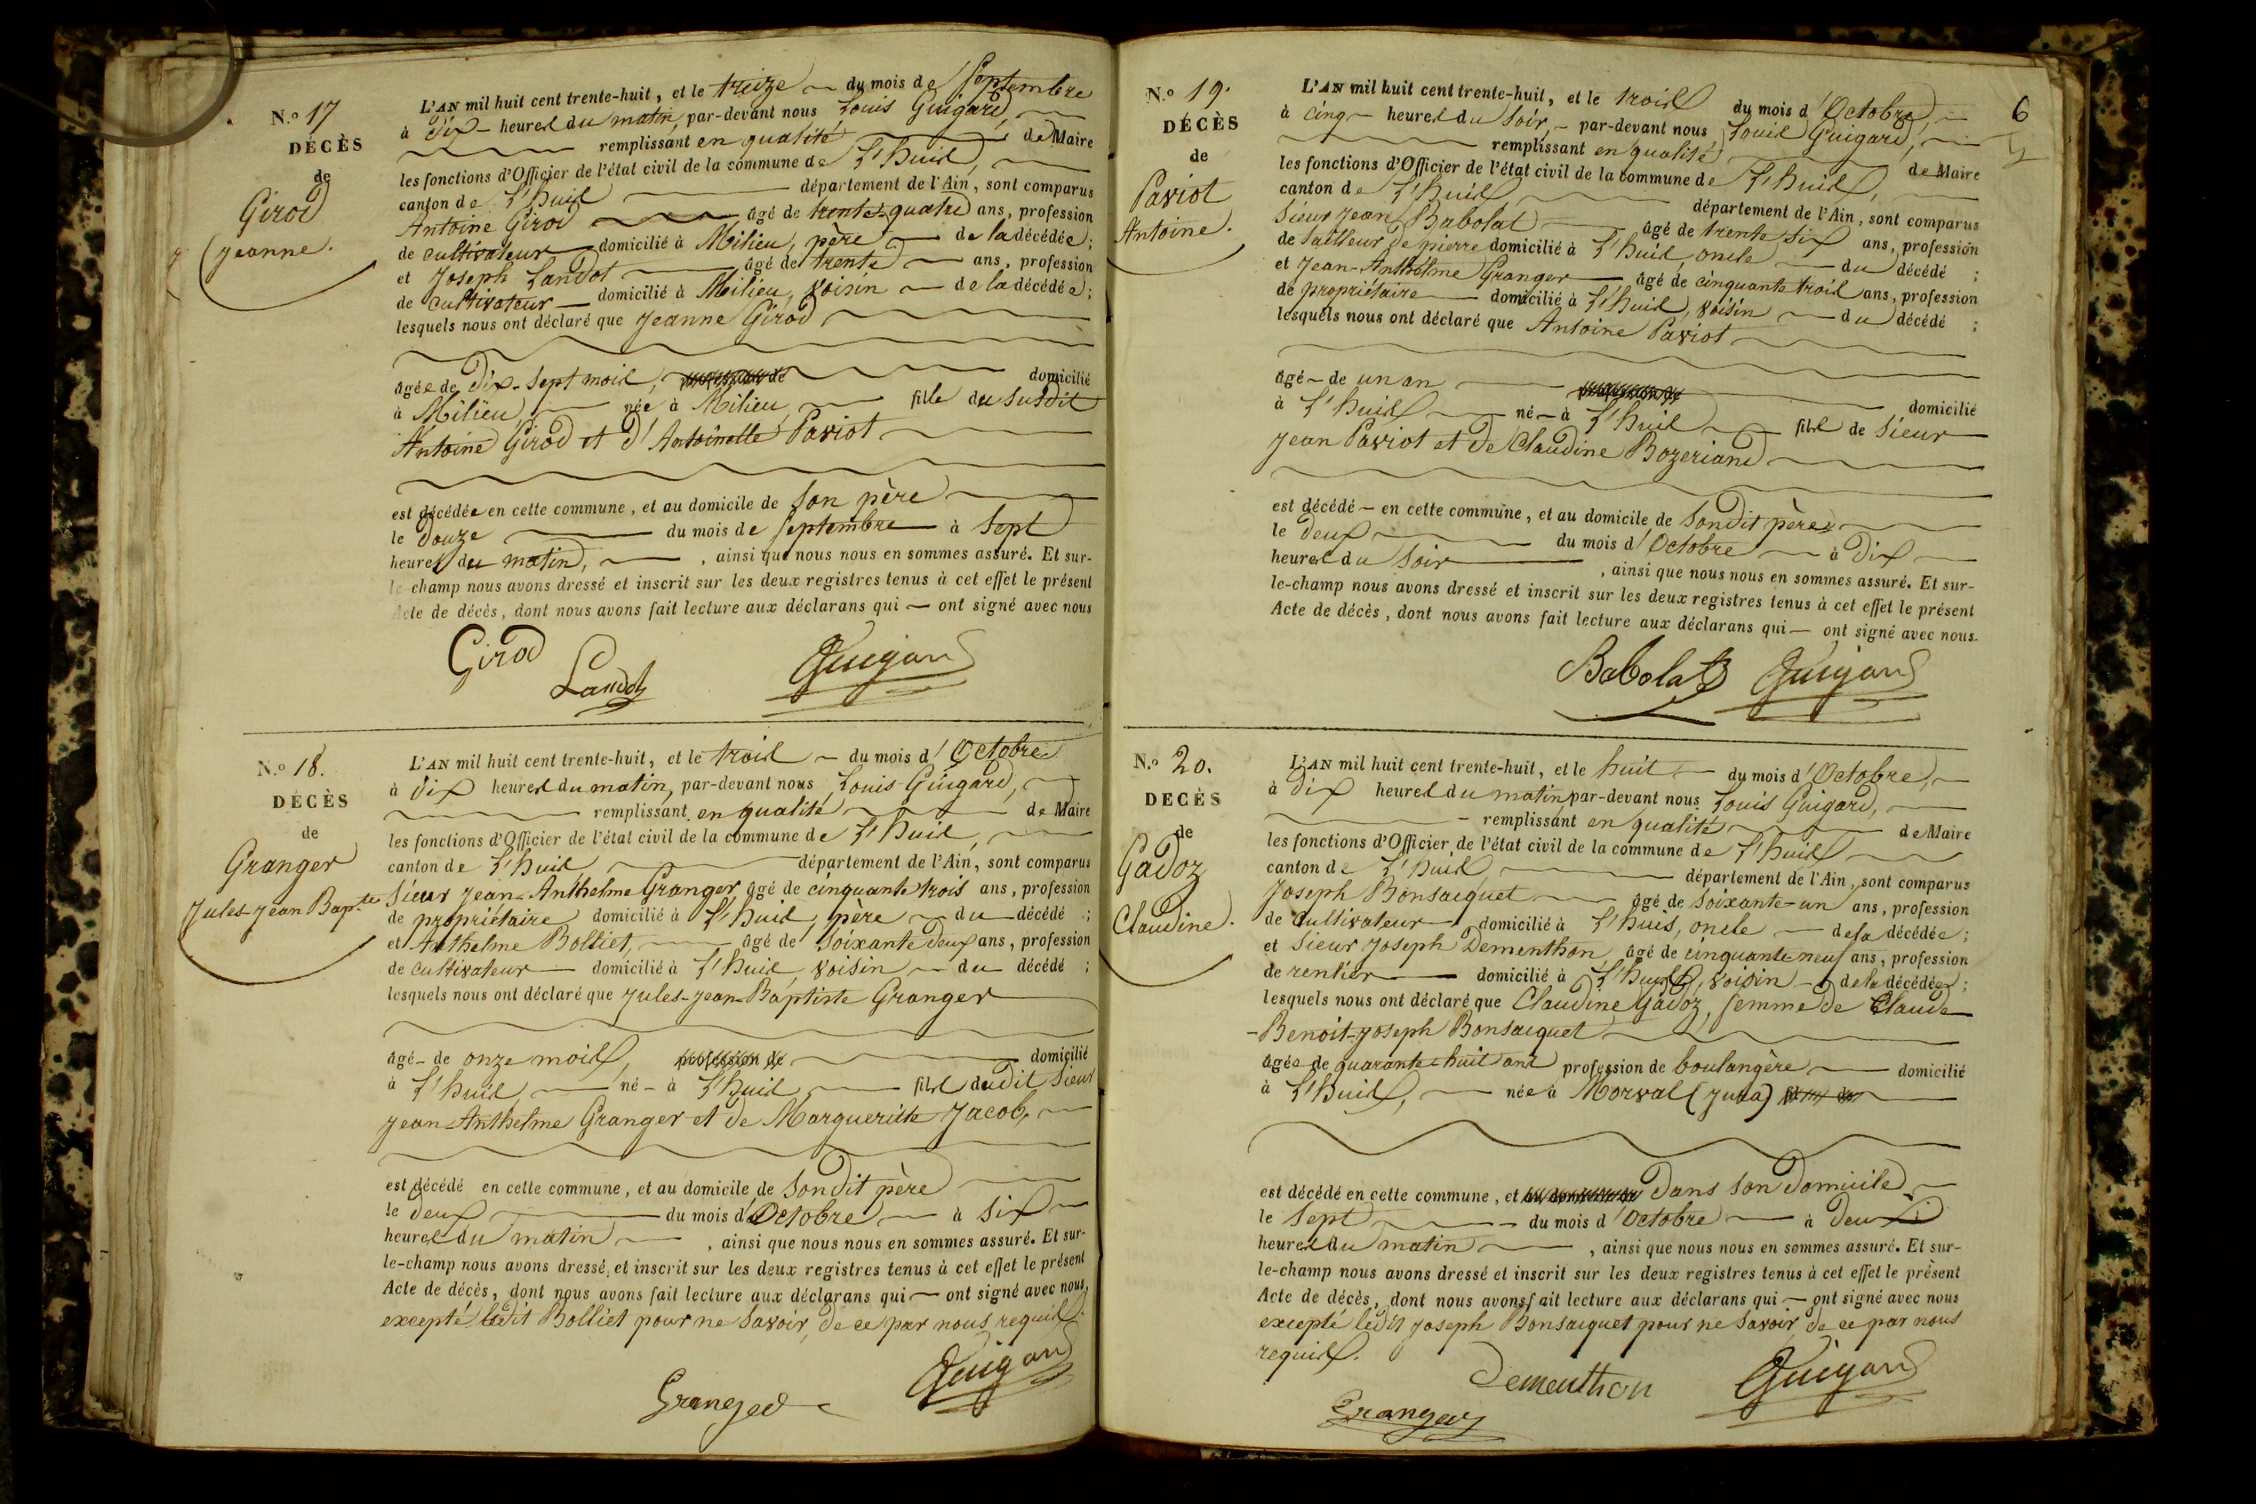 N.o 17
DÉCÈS
de
Girod
Jeanne.
L'AN mil huit cent trente-huit, et le treize du mois de Septembre
à dix heures du matin, par-devant nous Louis Guigard,
remplissant en qualité de Maire
les fonctions d'Officier de l'état civil de la commune de L'huis,
canton de L'huis département de l'Ain, sont comparus
Antoine Girod âgé de trente-quatre ans, profession
de cultivateur domicilié à Milieu, père de la décédée;
et Joseph Landot âgé de trente ans, profession
de cultivateur domicilié à Milieu, voisin de la décédée;
lesquels nous ont déclaré que Jeanne Girod
âgée de dix-sept mois, profession de domicilié
à Milieu, née à Milieu, fille du susdit
Antoine Girod et d'Antoinette Paviot
est décédée en cette commune, et au domicile de son père
le douze du mois de septembre à sept
heures du matin, , ainsi que nous nous en sommes assuré. Et sur-
le-champ nous avons dressé et inscrit sur les deux registres tenus à cet effet le présent
Acte de décès, dont nous avons fait lecture aux déclarans qui — ont signé avec nous
Girod
Landot
Guigard
N.o 18.
DÉCÈS
de
Granger
Jules-Jean Bapte
L'AN mil huit cent trente-huit, et le trois du mois d'Octobre
à dix heures du matin, par-devant nous Louis Guigard,
remplissant en qualité de Maire
les fonctions d'Officier de l'état civil de la commune de L'huis,
canton de L'huis, département de l'Ain, sont comparus
Sieur Jean-Anthelme Granger âgé de cinquante trois ans, profession
de propriétaire domicilié à L'huis, père du décédé ;
et Anthelme Bolliet, âgé de soixante deux ans, profession
de cultivateur domicilié à L'huis, voisin du décédé ;
lesquels nous ont déclaré que Jules-Jean-Baptiste Granger
âgé de onze mois, profession de domicilié
à L'huis, né à L'huis, fils dudit Sieur
Jean-Anthelme Granger et de Marguerite Jacob,
est décédé en cette commune, et au domicile de sondit père
le deux du mois d'Octobre à six
heures du matin , ainsi que nous nous en sommes assuré. Et sur-
le-champ nous avons dressé et inscrit sur les deux registres tenus à cet effet le présent
Acte de décès, dont nous avons fait lecture aux déclarans qui — ont signé avec nous,
excepté ledit Bolliet pour ne savoir, de ce par nous requis.
Granger
Guigard
6
N.o 19.
DÉCÈS
de
Paviot
Antoine.
L'AN mil huit cent trente-huit, et le trois du mois d'Octobre,
à cinq heures du soir, par-devant nous Louis Guigard,
remplissant en qualité de Maire
les fonctions d'Officier de l'état civil de la commune de L'huis,
canton de L'huis, département de l'Ain, sont comparus
Sieur Jean Babolat âgé de trente six ans, profession
de tailleur de pierre domicilié à L'huis, oncle du décédé ;
et Jean-Anthelme Granger âgé de cinquante trois ans, profession
de propriétaire domicilié à L'huis, voisin du décédé ;
lesquels nous ont déclaré que Antoine Paviot
âgé de un an profession de domicilié
à L'huis né à L'huis fils de Sieur
Jean Paviot et de Claudine Bozeriand
est décédé en cette commune, et au domicile de sondit père
le deux du mois d'Octobre à dix
heures du soir , ainsi que nous nous en sommes assuré. Et sur-
le-champ nous avons dressé et inscrit sur les deux registres tenus à cet effet le présent
Acte de décès, dont nous avons fait lecture aux déclarans qui — ont signé avec nous.
Babolat Guigard
N.o 20.
DÉCÈS
de
Gadoz
Claudine.
L'AN mil huit cent trente-huit, et le huit du mois d'Octobre,
à dix heures du matin, par-devant nous Louis Guigard,
remplissant en qualité de Maire
les fonctions d'Officier de l'état civil de la commune de L'huis
canton de L'huis, département de l'Ain, sont comparus
Joseph Bonsacquet âgé de soixante-un ans, profession
de cultivateur domicilié à L'huis, oncle de la décédée;
et Sieur Joseph Dementhon, âgé de cinquante-neuf ans, profession
de rentier domicilié à L'huis, voisin de la décédée;
lesquels nous ont déclaré que Claudine Gadoz, femme de Claude
-Benoit-Joseph Bonsacquet
âgée de quarante-huit ans profession de boulangère domicilié
à L'huis, née à Morval (Jura) fil de
est décédé en cette commune, et au domicile de dans son domicile
le sept du mois d'Octobre à deux
heures du matin , ainsi que nous nous en sommes assuré. Et sur-
le-champ nous avons dressé et inscrit sur les deux registres tenus à cet effet le présent
Acte de décès, dont nous avons fait lecture aux déclarans qui — ont signé avec nous
excepté ledit Joseph Bonsacquet pour ne savoir, de ce par nous
requis.
Dementhon Guigard
Granger